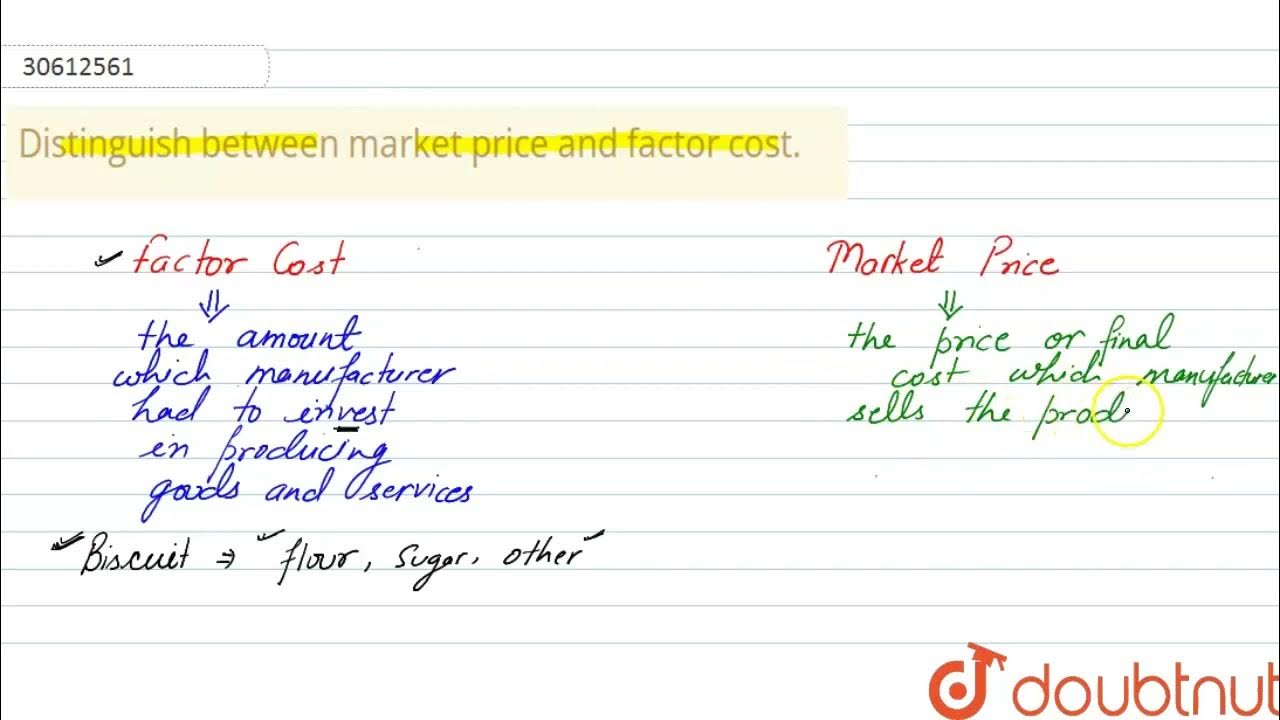 30612561
Distinguish between market price and factor cost.
factor Cost
the amount
which manufacturer
had to invest
in producing
goods and services
Biscuit ⇒ flour, sugar, other
Market Price
the price or final
cost which manufacturer
sells the prod
doubtnut